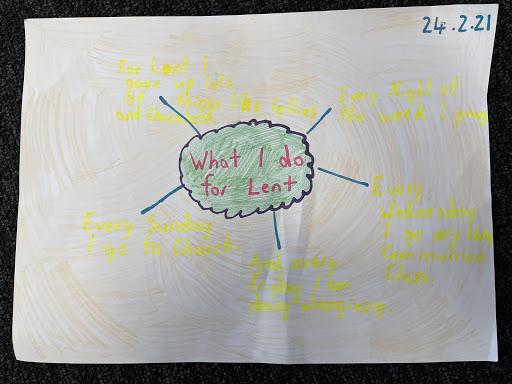 24.2.21
For Lent I
gave up lots
of things like lollies
and Chocolate.
Every Night of
the week I pray
What I do
for Lent
Every
Wednesday
I go my Holy
Communion
Class.
Every Sunday
I go to Church.
And every
Friday I am
doing almsgiving.